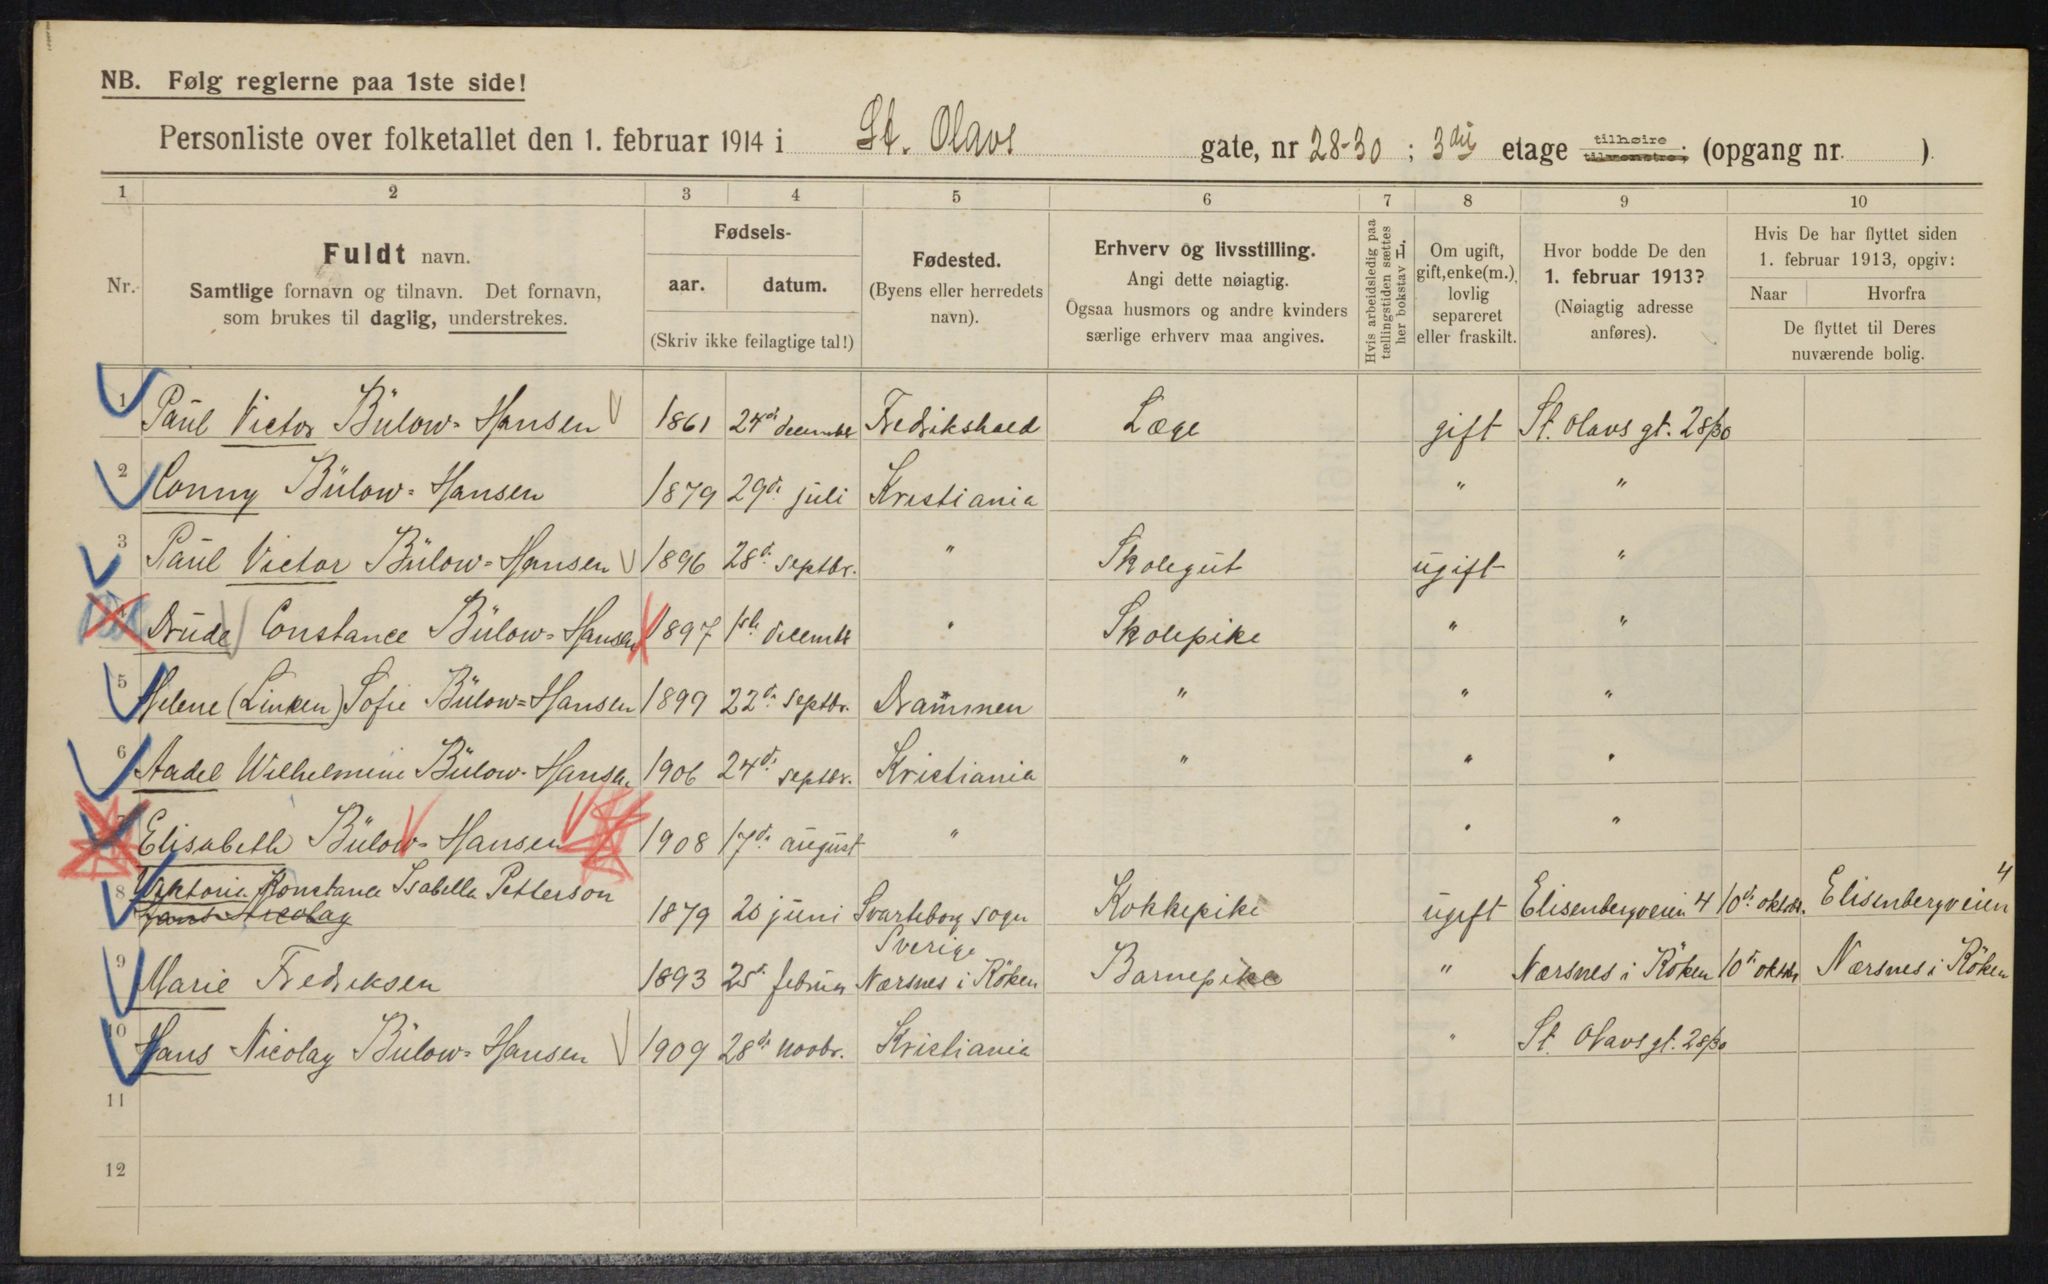 NB. Følg reglerne paa 1ste side!
Personliste over folketallet den 1. februar 1914 i St. Olavs gate, nr 28-30 ; 3die etage tilhøire. (opgang nr. ).
1 2 3 4 5 6 7 8 9 10
Nr.
Fuldt navn.
Samtlige fornavn og tilnavn. Det fornavn,
som brukes til daglig, understrekes.
Fødsels-
aar. datum.
(Skriv ikke feilagtige tal!)
Fødested.
(Byens eller herredets
navn).
Erhverv og livsstilling.
Angi dette nøiagtig.
Ogsaa husmors og andre kvinders
særlige erhverv maa angives.
Hvis arbeidsledig paa
tællingstiden sættes
her bokstav L
Om ugift,
gift, enke(m.),
lovlig
separeret
eller fraskilt.
Hvor bodde De den
1. februar 1913?
(Nøiagtig adresse
anføres).
Hvis De har flyttet siden
1. februar 1913, opgiv:
Naar Hvorfra
De flyttet til Deres
nuværende bolig.
1 Paul Victor Bülow-Hansen 1861 24d december Fredrikshald Læge gift St. Olavs gt. 28/30
2 Conny Bülow-Hansen 1879 29d. juli Kristiania " "
3 Paul Victor Bülow-Hansen 1896 28d. septbr. " Skolegut ugift "
4 Drude Constance Bülow-Hansen 1897 1ste decembr " Skolepike " "
5 Helene (Linken) Sofie Bülow-Hansen 1899 22d. septbr. Drammen " " "
6 Aadel Wilhelmine Bülow-Hansen 1906 24d. septbr. Kristiania " " "
7 Elisabeth Bülow-Hansen 1908 17d. august " " "
8 Viktoria Konstance Isabella Petterson 1879 juni Svarteborg sogn Kokkepike ugift Elisenbergveien 4 10d. oktbr. Elisenbergveien 4
Hans Nicolay
Sverige
9 Marie Fredriksen 1893 25d. februar Nærsnes i Röken Barnepike " Nærsnes i Röken 10d oktbr Nærsnes i Röken
10 Hans Nicolay Bülow-Hansen 1909 28d. novbr. Kristiania " St. Olavs gt. 28/30
11
12